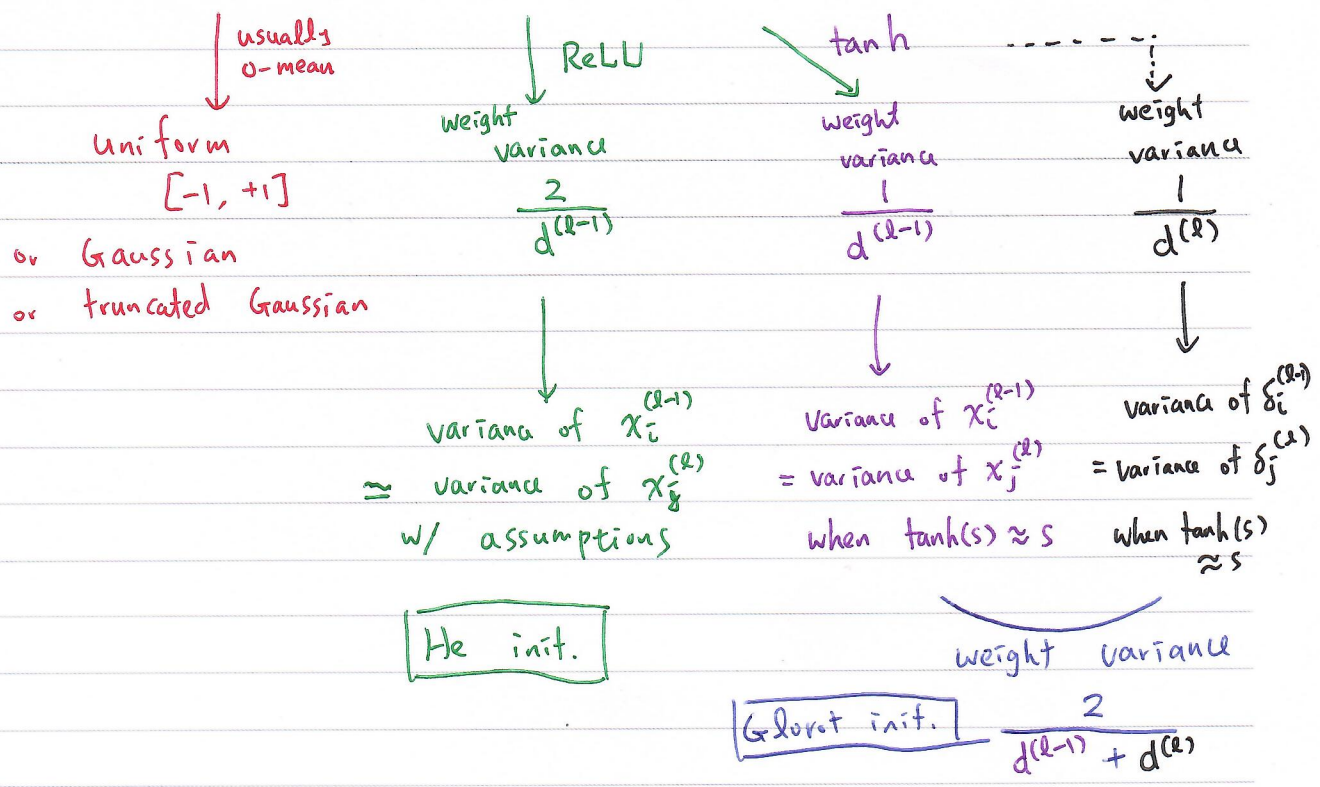 usually
0-mean
uniform
[-1, +1]
or Gaussian
or truncated Gaussian
ReLU
weight
variance
2
d^(l-1)
variance of x_i^(l-1)
≃ variance of x_j^(l)
w/ assumptions
He init.
tanh
weight
variance
1
d^(l-1)
variance of x_i^(l-1)
= variance of x_j^(l)
when tanh(s) ≈ s
weight
variance
1
d^(l)
variance of δ_i^(l-1)
= variance of δ_j^(l)
when tanh(s)
≈ s
weight variance
Glorot init.
2
d^(l-1) + d^(l)